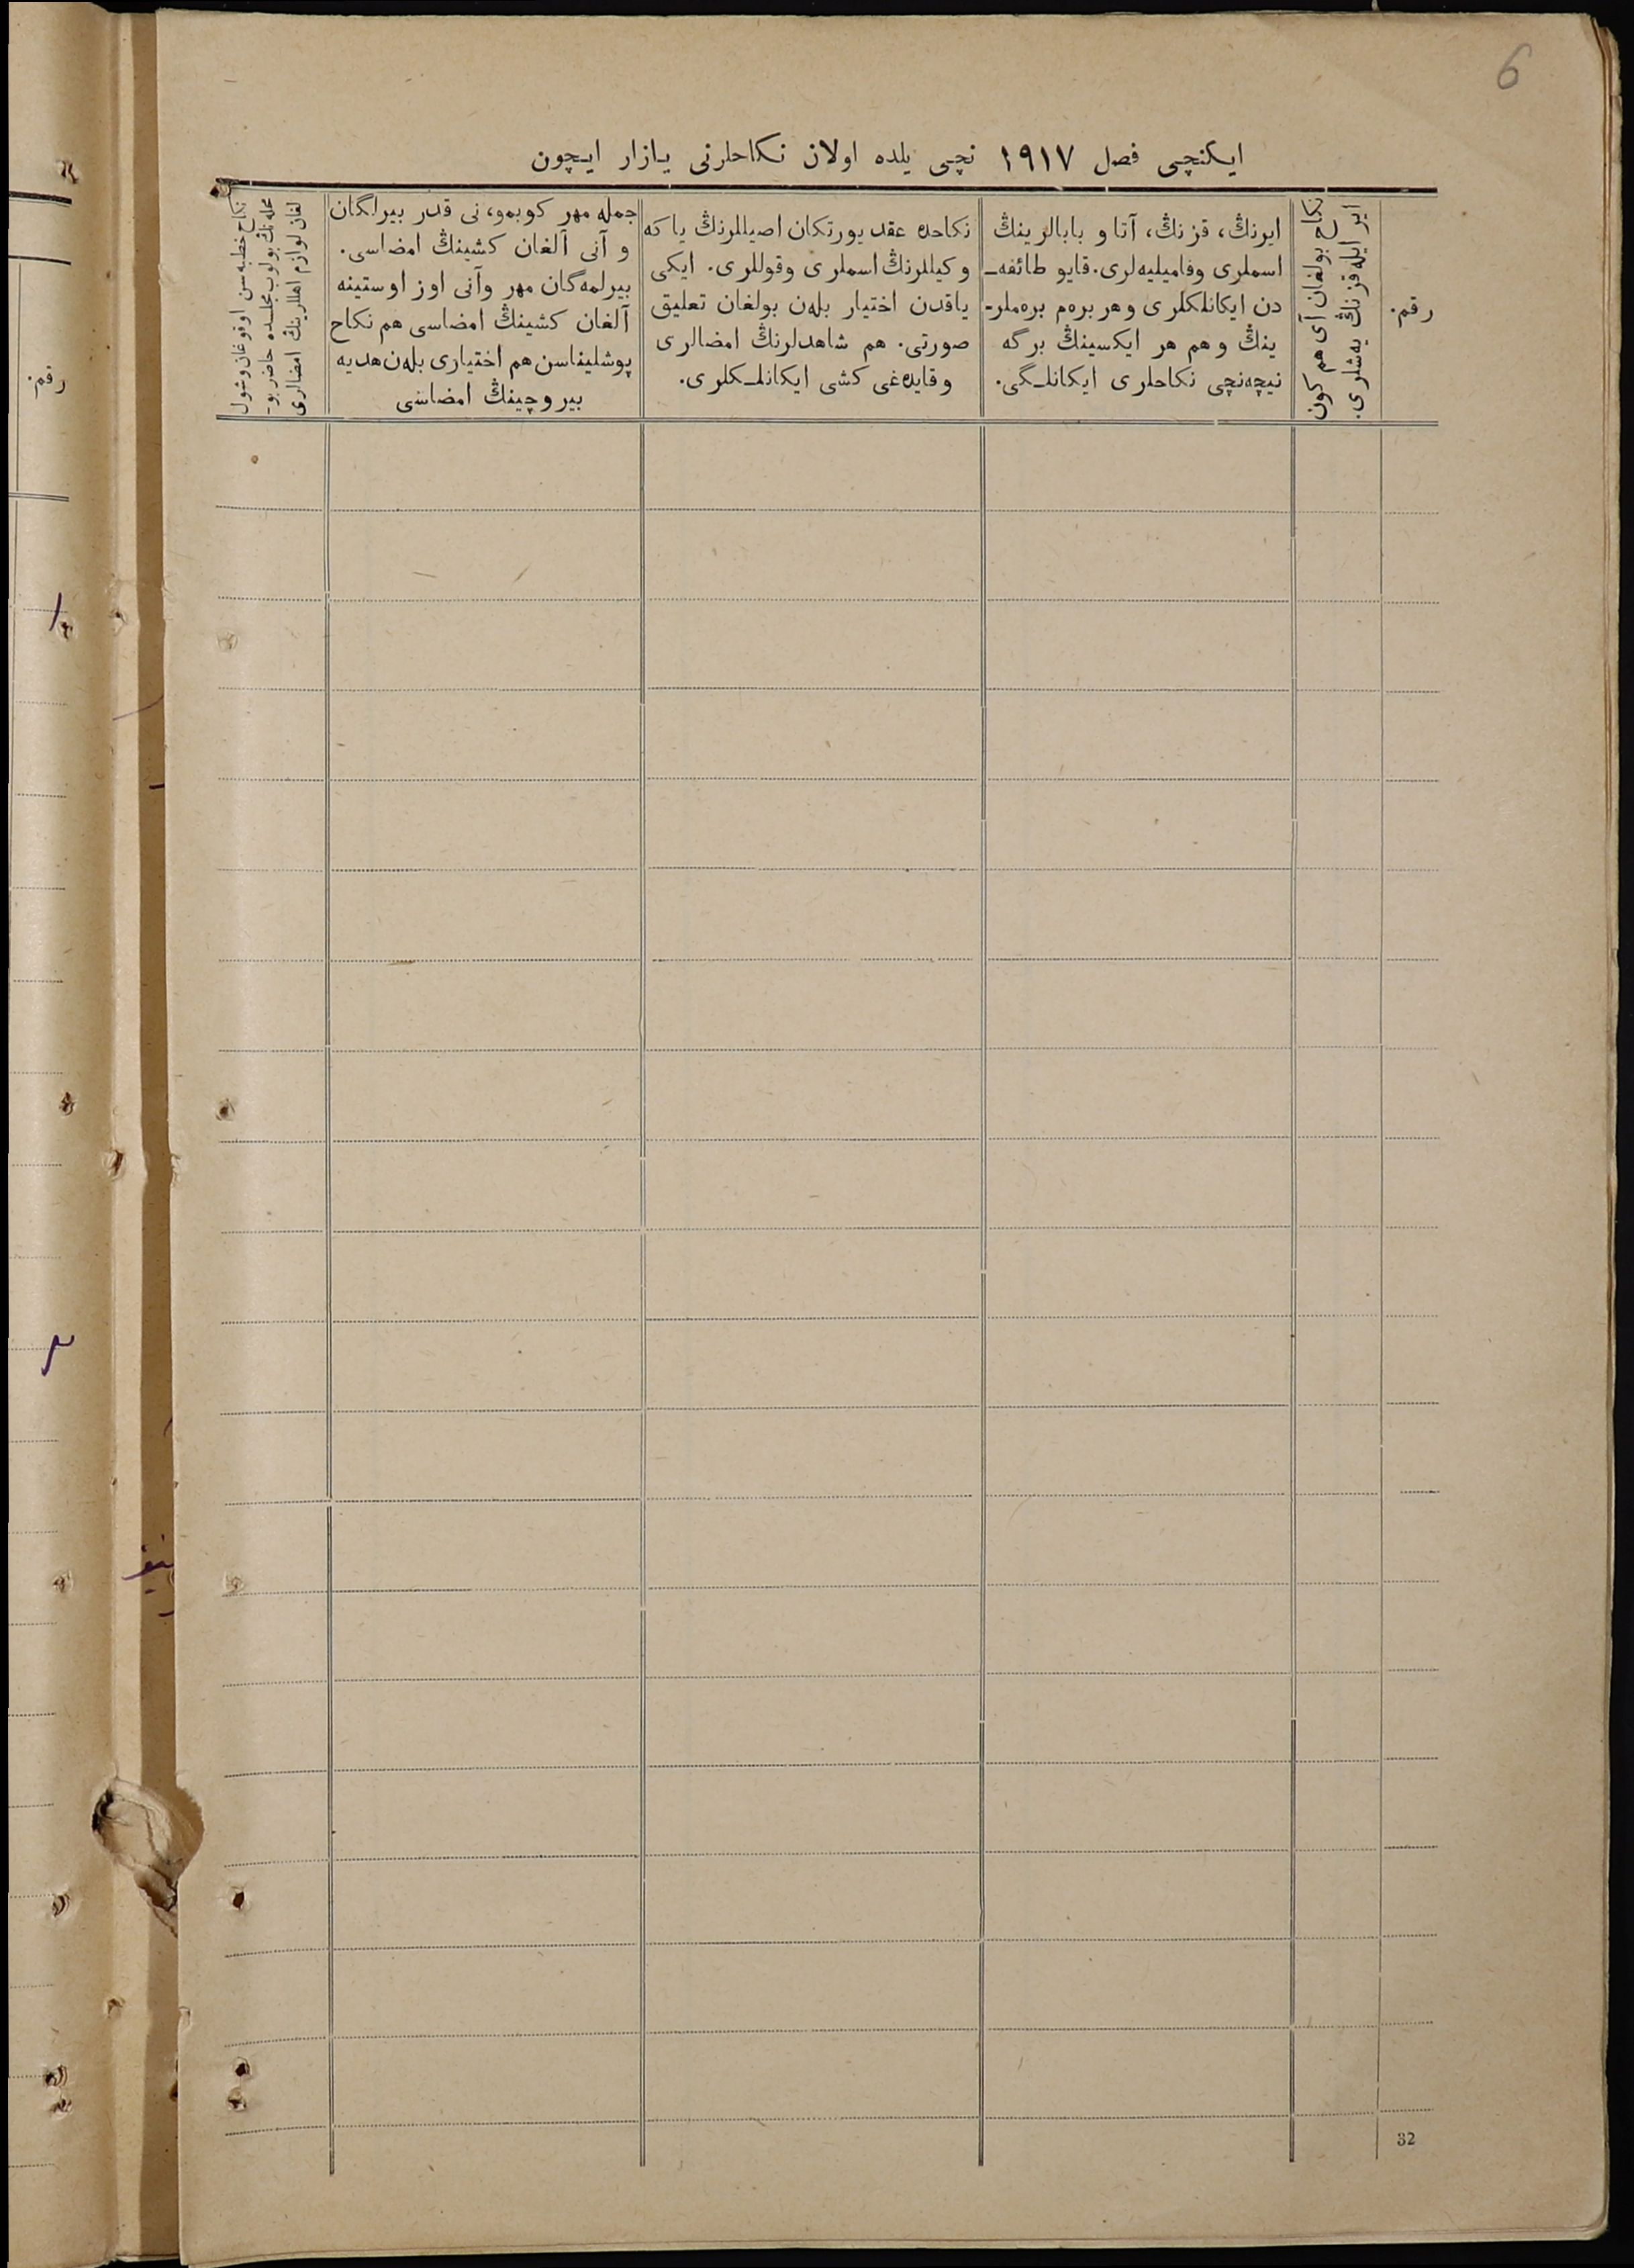 6
ایكنچی فصل ۱۹۱۷ نچی یلده اولان نكاحلرنی یازار ایچون
رقم.
نكاح بولغان آی هم كون
ایر ایله قزنڭ یه‌شلری.
ایرنڭ، قزنڭ، آتا و بابالرینڭ
اسملری وفامیلیه‌لری. قایو طائفه‌ـ
دن ایكانلكلری و هر بره‌م بره‌ملر‌ـ
ینڭ و هم هر ایكسینڭ برگه
نیچه‌نچی نكاحلری ایكانلـگی.
نكاحده عقد یورتكان اصیللرنڭ یا كه
وكیللرنڭ اسملری وقوللری. ایكی
یاقدن اختیار بله‌ن بولغان تعلیق
صورتی. هم شاهدلرنڭ امضالری
وقایده‌غی كشی ایكانلـكلری.
جمله مهر كوبمو، نی قدر بیرلگان
و آنی آلغان كشینڭ امضاسی.
بیرلمه‌گان مهر وآنی اوز اوستینه
آلغان كشینڭ امضاسی هم نكاح
پوشلیناسن هم اختیاری بله‌ن هدیه
بیروچینڭ امضاسی
نكاح خطبه‌سن اوقوغان وشول
محله‌نڭ بولوب مجلسده حاضر بو‌ـ
لغان لوازم اهللرینڭ امضالری
32
رقم.
۱
۲